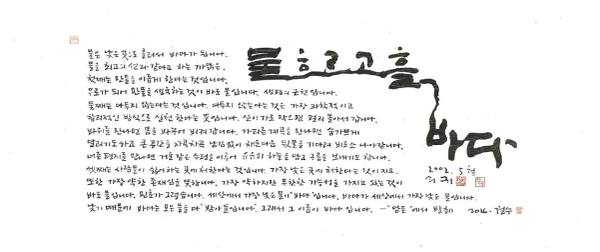 물 흐르고 흘
바다
2002. 5월
물은 낮은 곳으로 흘러서 바다가 됩니다.
물을 최고의 선과 같다고 하는 까닭은,
첫째는 만물을 이롭게 한다는 것입니다.
우로가 되어 만물을 생육하는 것이 바로 물입니다. 생명의 근원입니다.
둘째는 다투지 않는다는 것입니다. 다투지 않는다는 것은 가장 과학적이고
합리적인 방식으로 실천한다는 뜻입니다. 산이 가로막으면 멀리 돌아서 갑니다.
바위를 만나면 몸을 나누어 비켜갑니다. 가파른 계곡을 만나면 숨가쁘게
달리기도 하고 큰 공간을 차곡차곡 남김없이 채운 다음 뒷물을 기다려 비로소 나아갑니다.
너른 평지를 만나면 거울 같은 수평을 이루어 유유히 하늘을 담고 구름을 보내기도 합니다.
셋째는 사람들이 싫어하는 곳에 처한다는 것입니다. 가장 낮은 곳에 처한다는 것이지요.
또한 가장 약한 존재임을 뜻합니다. 가장 약하지만 무한한 가능성을 가지고 있는 것이
바로 물입니다. 민초가 그렇습니다. 세상에서 가장 낮은 물이 '바다'입니다. 바다가 세상에서 가장 낮은 물입니다.
낮기 때문에 바다는 모든 물을 다 '받아들입니다'. 그래서 그 이름이 '바다'입니다. 에서 발췌 2016.